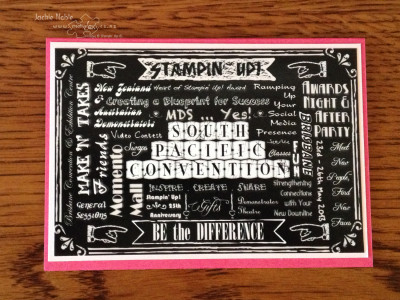 Jackie Noble
STAMPIN' UP!
New Zealand
Australian
Demonstrators
Heart of Stampin' Up! Award
Creating a Blueprint for Success
MDS ... Yes!
Video Contest
SOUTH
PACIFIC
CONVENTION
INSPIRE . CREATE . SHARE
Stampin' Up!
25th
Anniversary
Gifts
Demonstrator
Theatre
BE the DIFFERENCE
Brisbane Convention & Exhibition Centre
MAKE 'N' TAKES
Friends
General
Sessions
Momento
Mall
Ramping
Up
Your
Social
Media
Presence
Classes
FUN
BRISBANE
AWARDS
NIGHT &
AFTER
PARTY
23rd - 26th May 2013
Meet
New
People,
Find
New
Faces
Strengthening
Connections
with
Your
New Downline